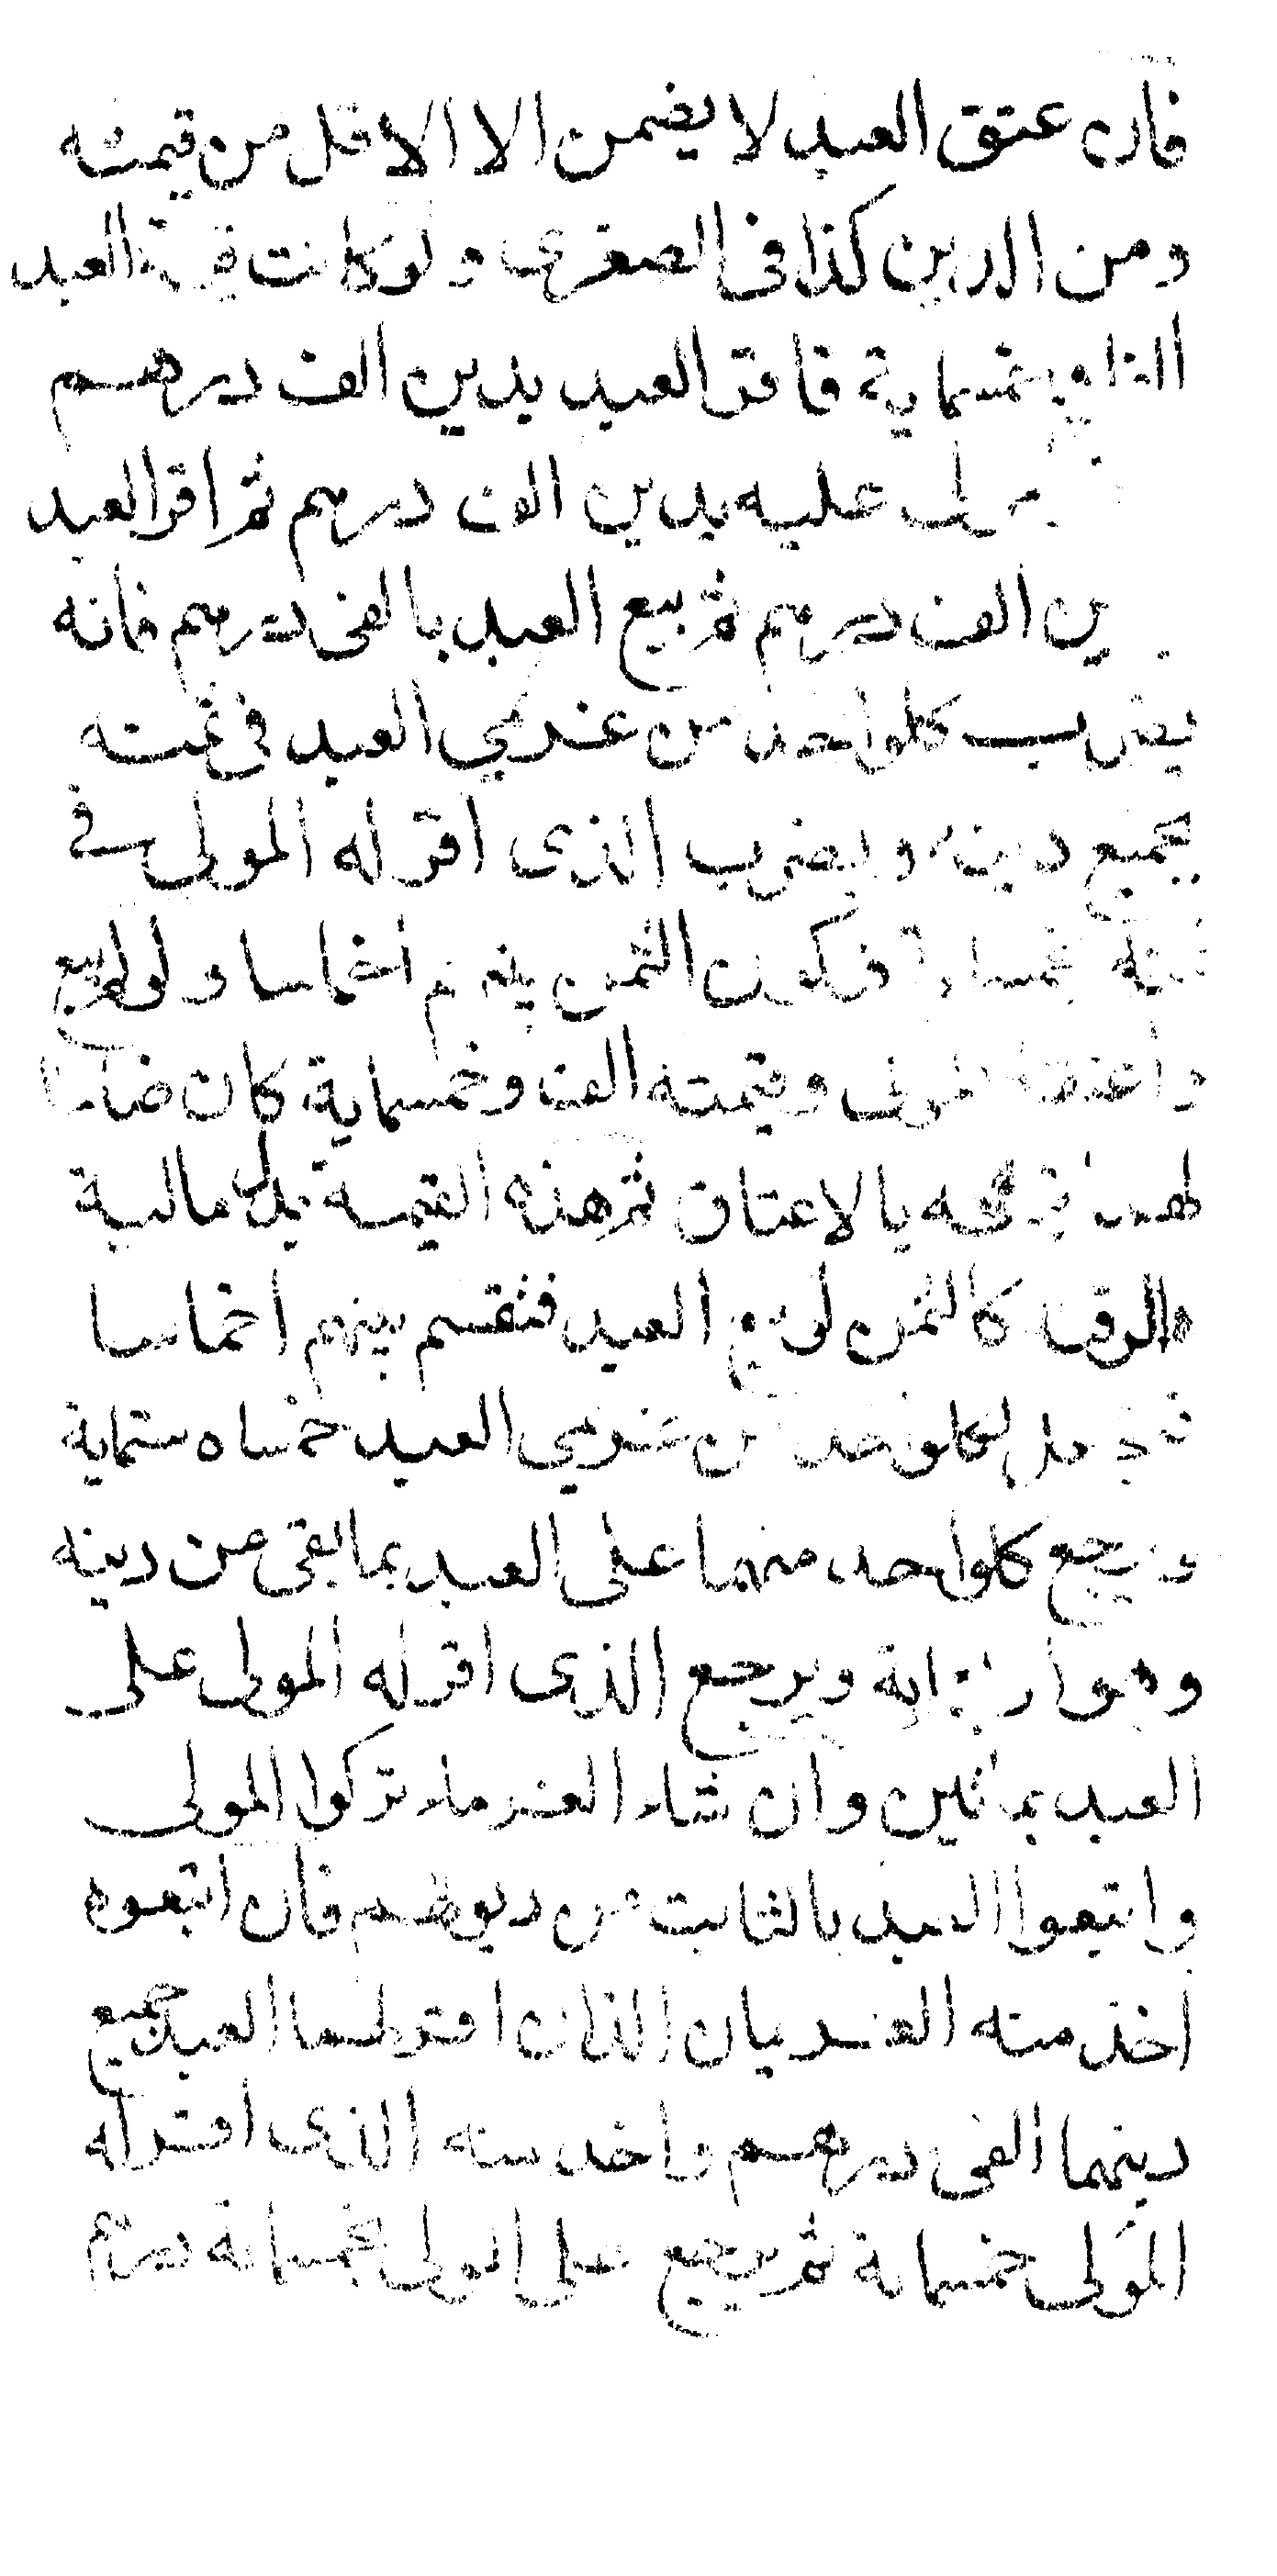 فان عتق العبد لا يضمن الا الاقل من قيمته
ومن الدين كذا فى الصغرى ولو كانت قيمة العبد
الفا وخمسماية فاقر العبد بدين الف درهم
عليه بدين الف درهم ثم اقر العبد
الف درهم ثم بيع العبد بالفى درهم فانه
يضرب كلواحد من غريمي العبد في ثمنه
بجميع دينه ويضرب الذى اقر له المولى في
فيكون الثمن بينهم اخماسا ولو لم يبع
واعتقه المولى وقيمته الف وخمسماية كان ضامنا
بالاعتاق ثم هذه القيمة بدل مالية
الرق كالثمن لو بيع العبد فتقسم بينهم اخماسا
لكلواحد من غريمي العبد خمساه ستماية
ويرجع كلواحد منهما على العبد بما بقى من دينه
وهو اربعماية ويرجع الذى اقر له المولى على
العبد بمائتين وان شاء الغرماء تركوا المولى
واتبعوا العبد بالثابت من ديونهم فان اتبعوه
اخذ منه الغريمان اللذان اقر لهما العبد جميع
دينهما الفى درهم واخد منه الذى اقر له
المولى خمسماية ثم يرجع على المولى بخمسماية درهم